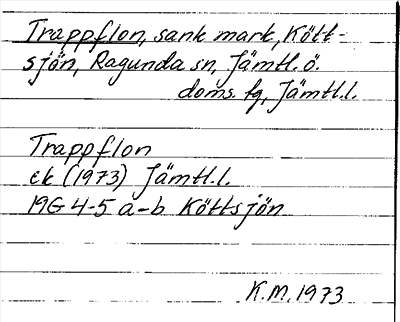 Trappflon, sank mark, Kött-
sjön, Ragunda sn, Jämtl.ö.
doms. fg, Jämtl.l.
Trappflon
ek (1973) Jämtl.l.
19G 4-5 a-b Köttsjön
K.M. 1973